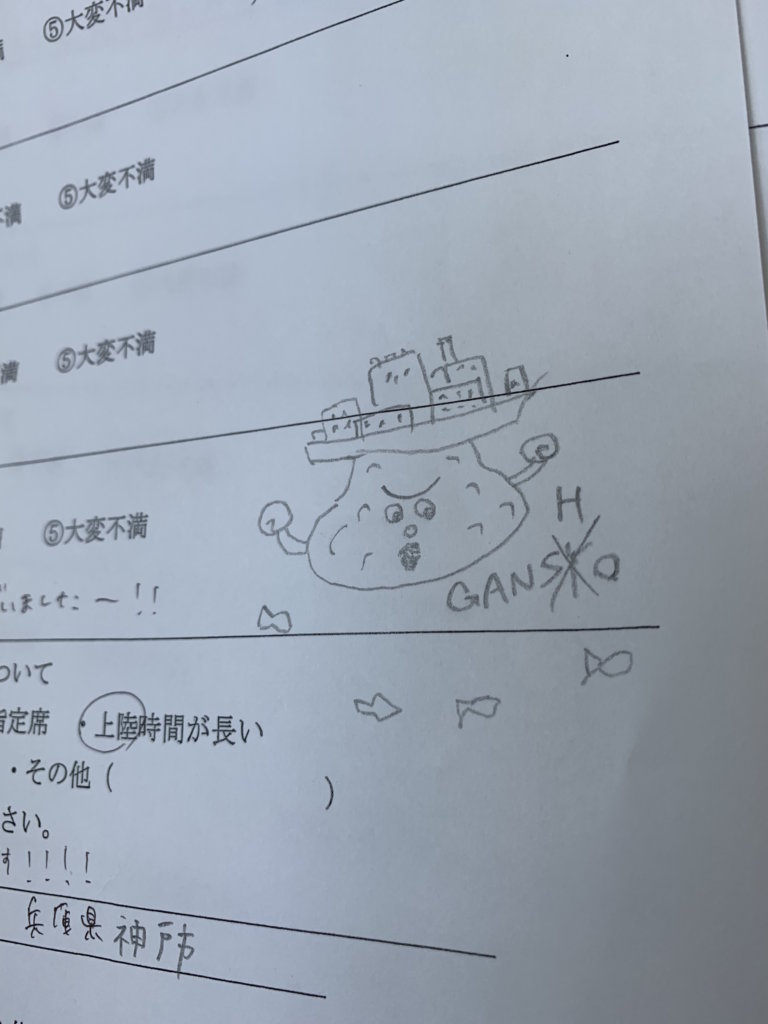 ⑤大変不満
満 ⑤大変不満
不満 ⑤大変不満
満 ⑤大変不満
⑤大変不満
いました〜!!
H
GANSO
ついて
指定席 ・上陸時間が長い
・その他( )
さい。
す!!!!
兵庫県神戸市